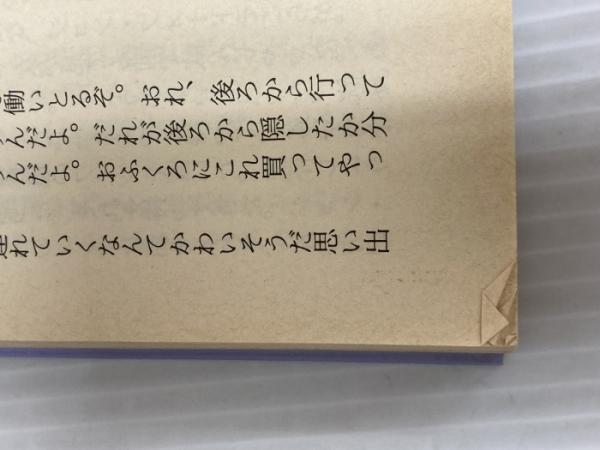 働いとるぞ。おれ、後ろから行って
んだよ。だれが後ろから隠したか分
んだよ。おふくろにこれ買ってやっ
れていくなんてかわいそうだ思い出